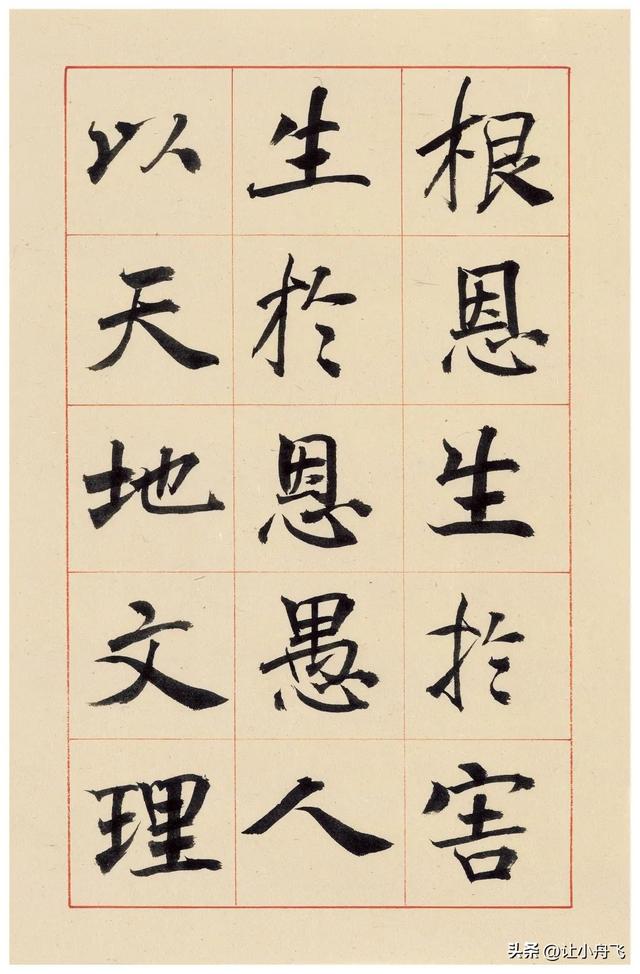 根恩生於害
生於恩愚人
以天地文理
头条 @让小舟飞